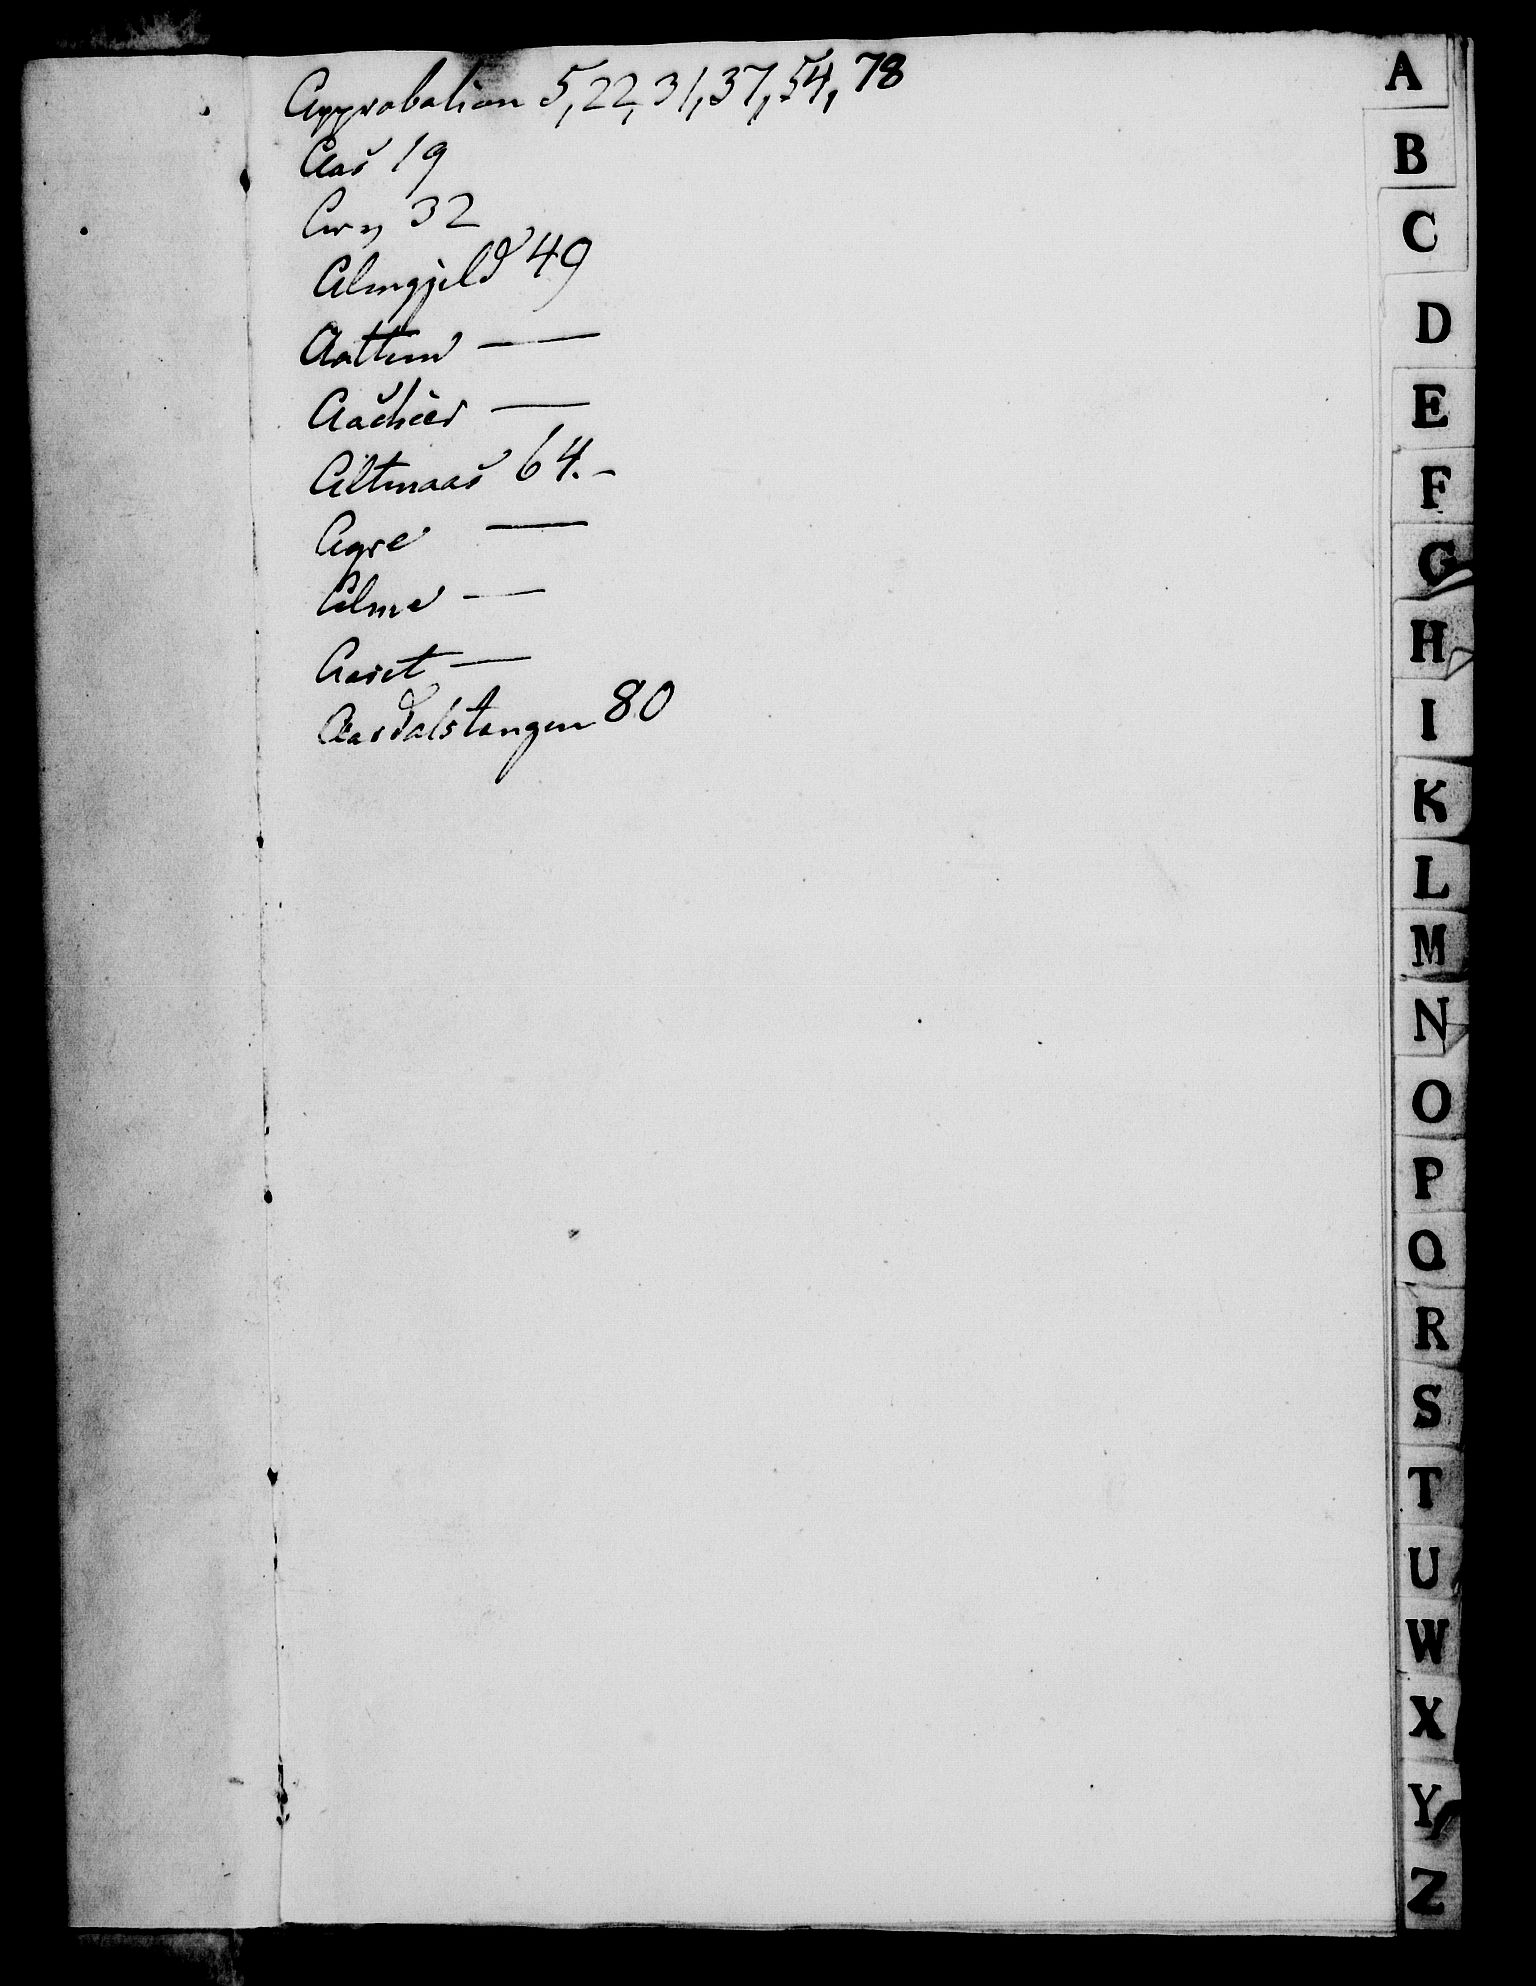 Approbation 5, 22, 31, 37, 54, 78
Aas 19
32
Almgjeld 49
Aattem —
—
Altmaas 64. –
Agre —
Alme —
Aaret —
Aardalstangen 80
A
B
C
D
E
F
G
H
I
K
L
M
N
O
P
Q
R
S
T
U
W
X
Y
Z